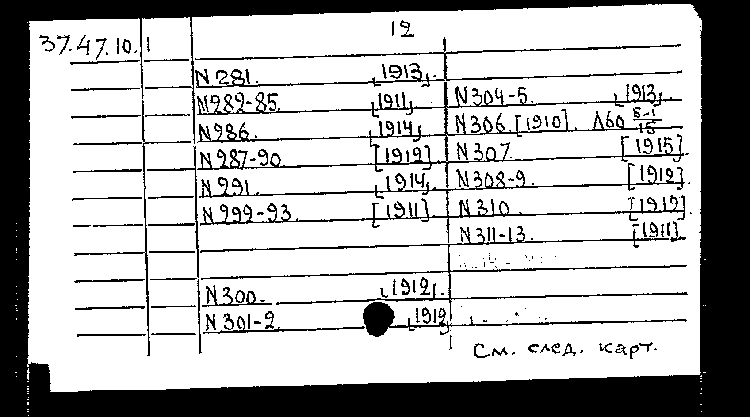 12
37.47.10.1
N 281. [1913].
N 282-85. [1911].
N 286. [1914].
N 287-90. [1912].
N 291. [1914].
N 292-93. [1911].
N 300. [1912].
N 301-2. [1912]
N 304-5. [1913].
N 306. [1910]. Л60 5-1/15
N 307. [1915]
N 308-9. [1912].
N 310. [1912]
N 311-13. [1911]
См. след. карт.